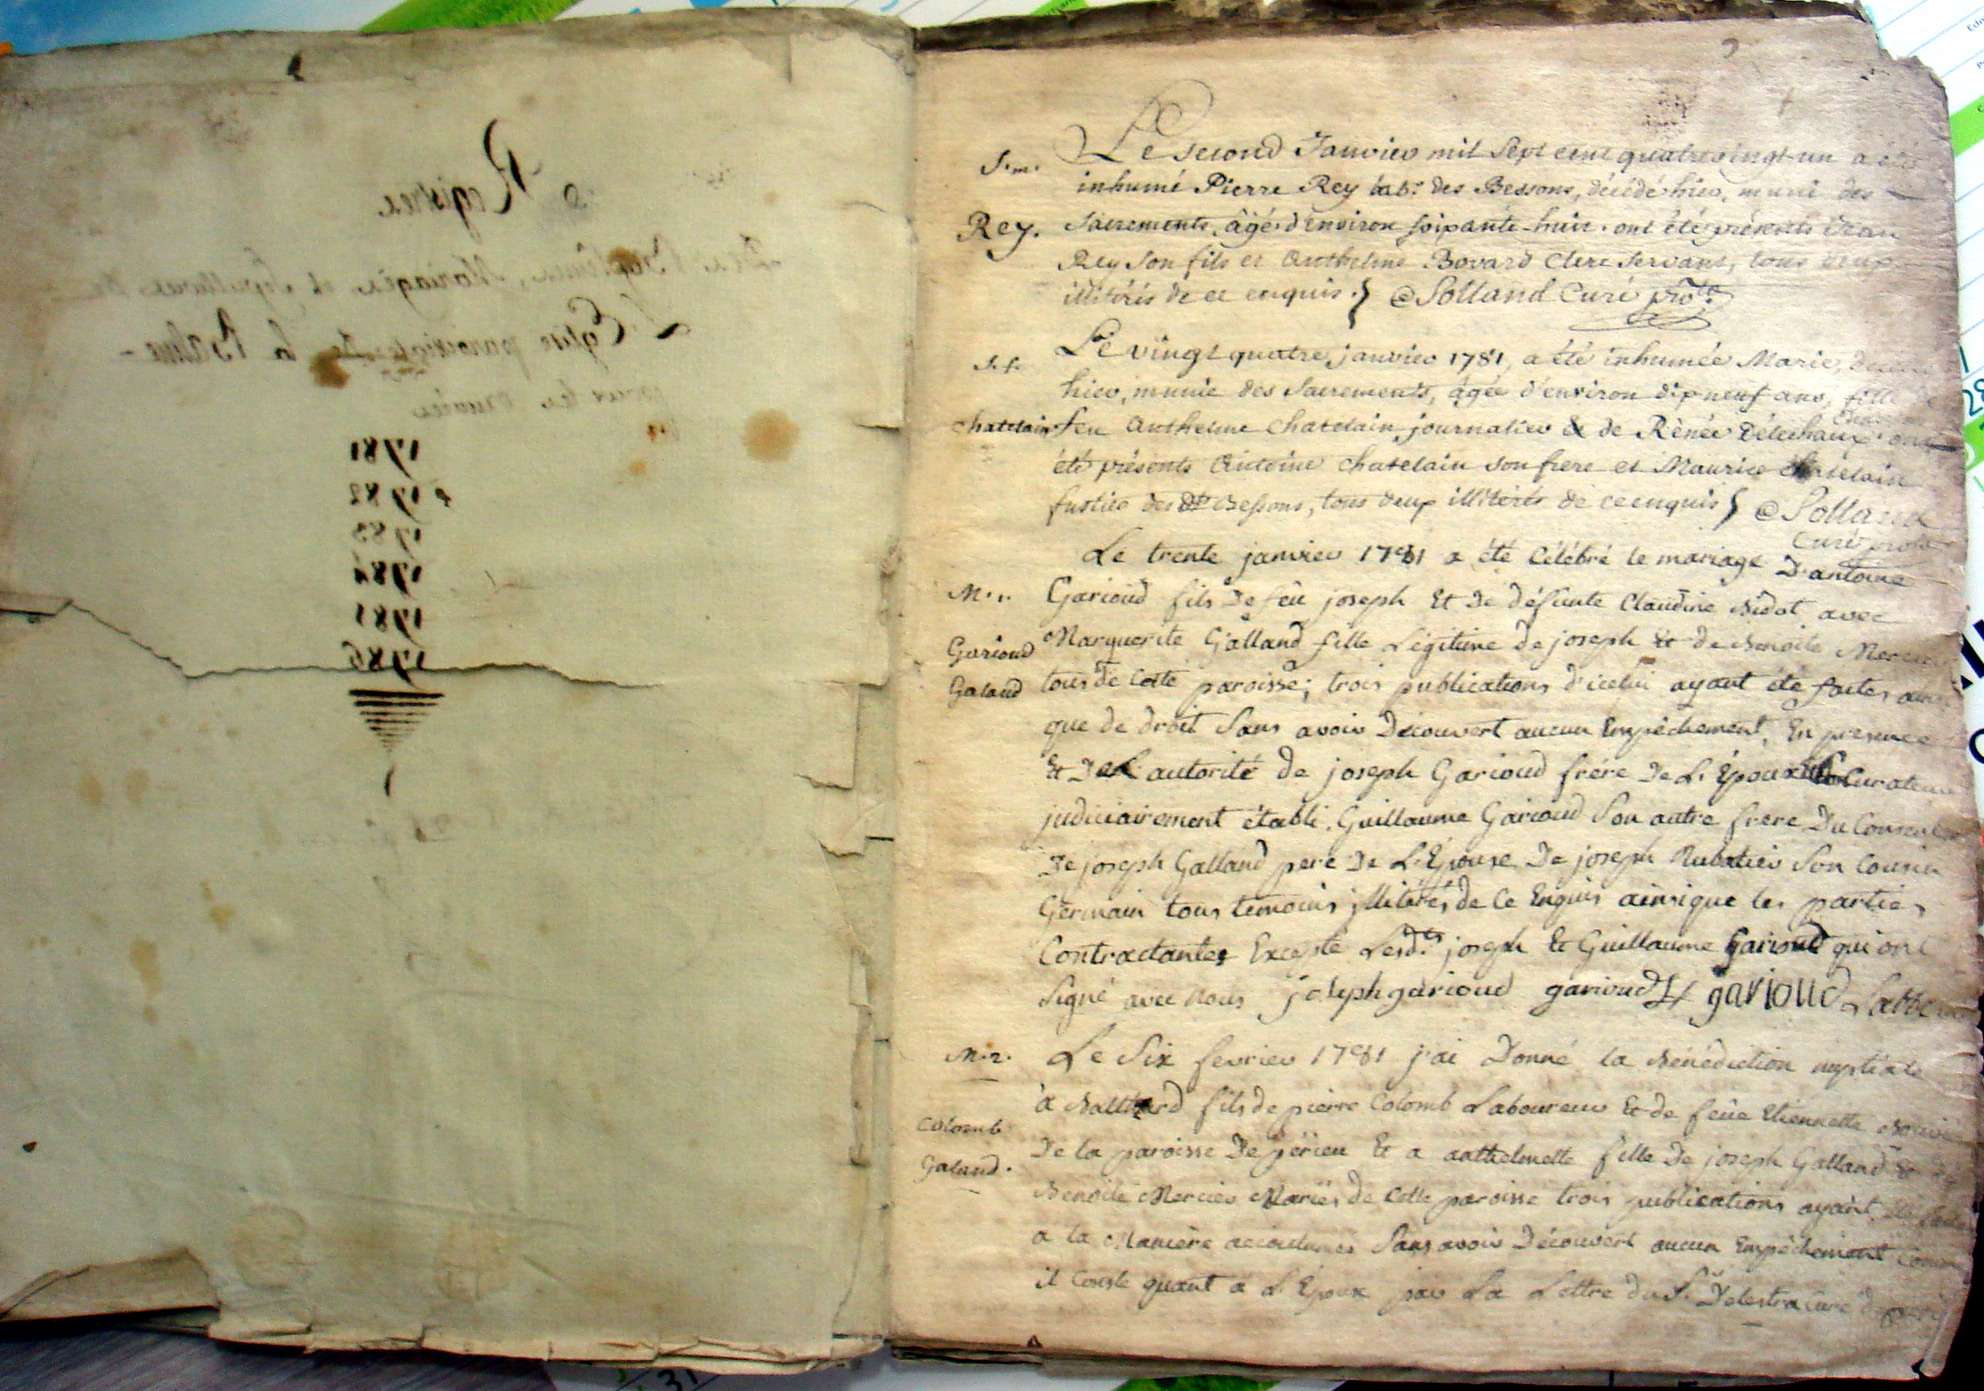 Registres
Des Baptêmes, Mariages et Sepultures De
L'Eglise paroissiale De la Balme
pour les années
1781
1782
1783
1784
1785
1786
S. m.
Rey.
Le second Janvier mil sept cent quatrevingt-un a été
inhumé Pierre Rey lab.r des Bessons, décédé hier, muni des
Sacrements, âgé d'environ soixante-huit. ont été présents Jean
Rey son fils et Anthelme Bovard Clerc servant, tous deux
illitérés de ce enquis. Solland Curé
S. f.
chatelain
Le vingt quatre janvier 1781, a été inhumée Marie,
hier, munie des Sacrements, âgée d'environ dix neuf ans, fille de
feu Anthelme Chatelain journalier & de Rènée Délechaux ont
été présents Antoine chatelain son frere et Maurice chatelain
fustier des Bessons, tous deux illitérés de ce enquis Solland
Curé
M. 1.
Garioud
Galand
Le trente janvier 1781 a été Célébré le mariage D'antoine
Garioud fils De feu joseph Et De défunte Claudine Bidot avec
Marguerite Galland fille Légitime de joseph Et de Benoite Mercier
tous de Cette paroisse; trois publications d'icelui ayant été faites
que de droit Sans avoir Découvert aucun Empêchement, En presence
Et De L'autorité de joseph Garioud frére De L'Epoux Curateur
judiciairement établi. Guillaume Garioud Son autre frere Du Consentement
De joseph Galland pere De L'Epouse De joseph Rubatier Son Cousin
Germain tous temoins illitérés de Ce Enquis ainsi que les parties
Contractantes Excepté Lesd.ts joseph Et Guillaume Garioud qui ont
Signé avec Nous joseph garioud garioud garioud
M. 2.
Colomb
Galand.
Le Six fevrier 1781 j'ai Donné la Bénédiction nuptiale
à Balthard fils de pierre Colomb Laboureur Et de feüe Etiennette
De la paroisse De périeu Et a anthelmette fille De joseph Galland & de
Benoite Mercier Mariés de Cette paroisse trois publications ayant été faites
a la Manière accoutumée Sans avoir Découvert aucun Empêchement Comme
il Conste quant a L'Epoux par La Lettre du S.r Delestra Curé